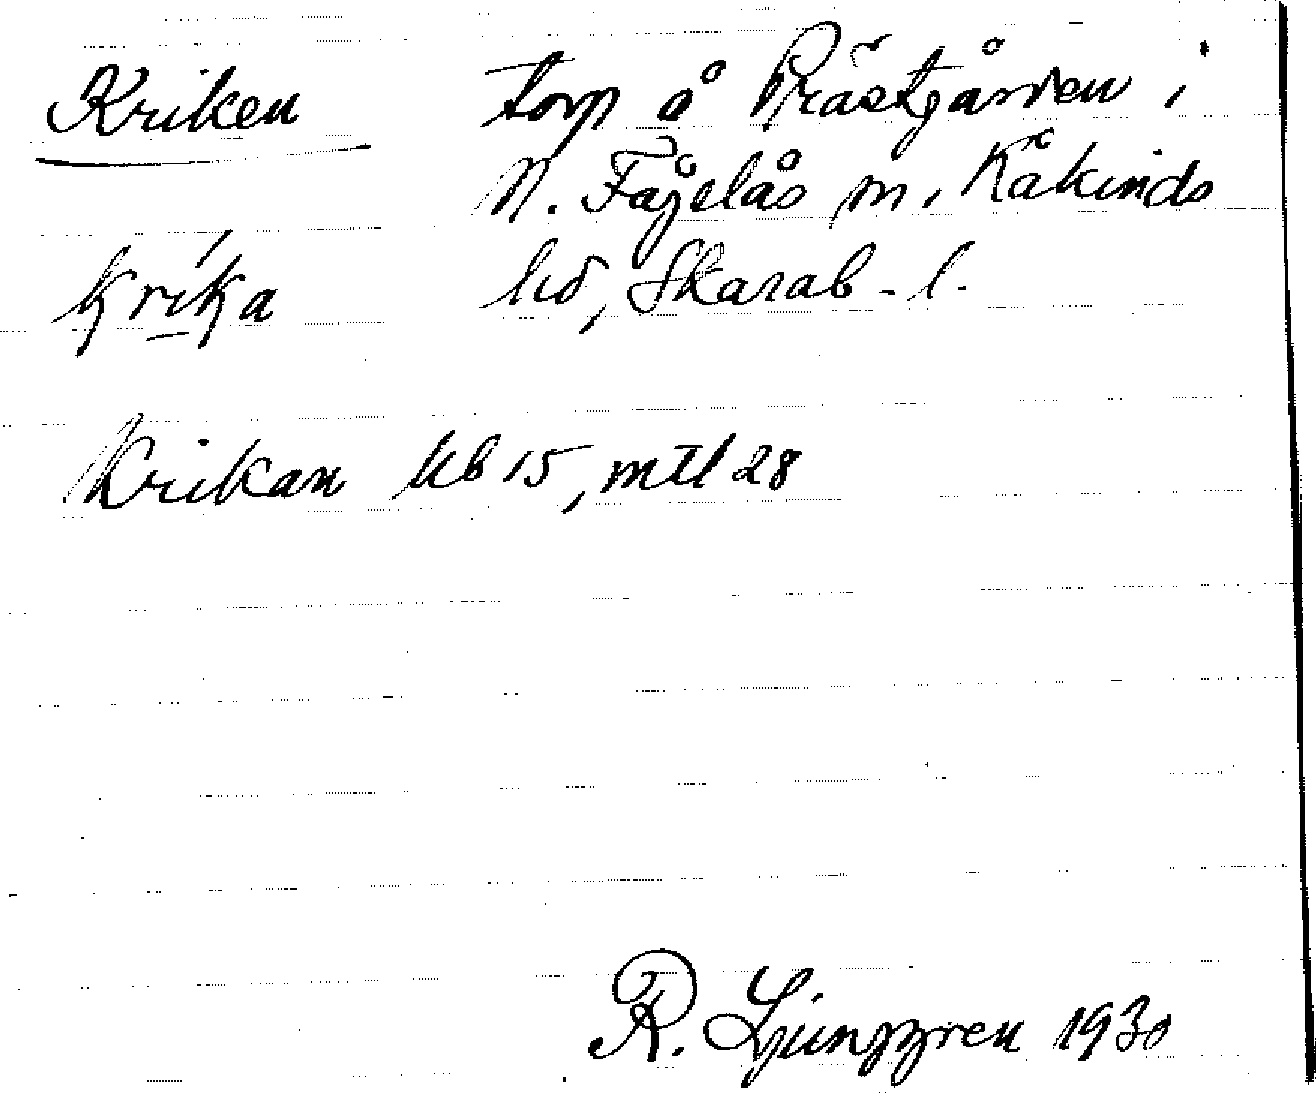 Kriken torp å Prästgården i
N. Fågelås sn, Kåkinds
hd, Skarab. l.
krika
Krikan kb 15, mtl 28
R. Ljunggren 1930